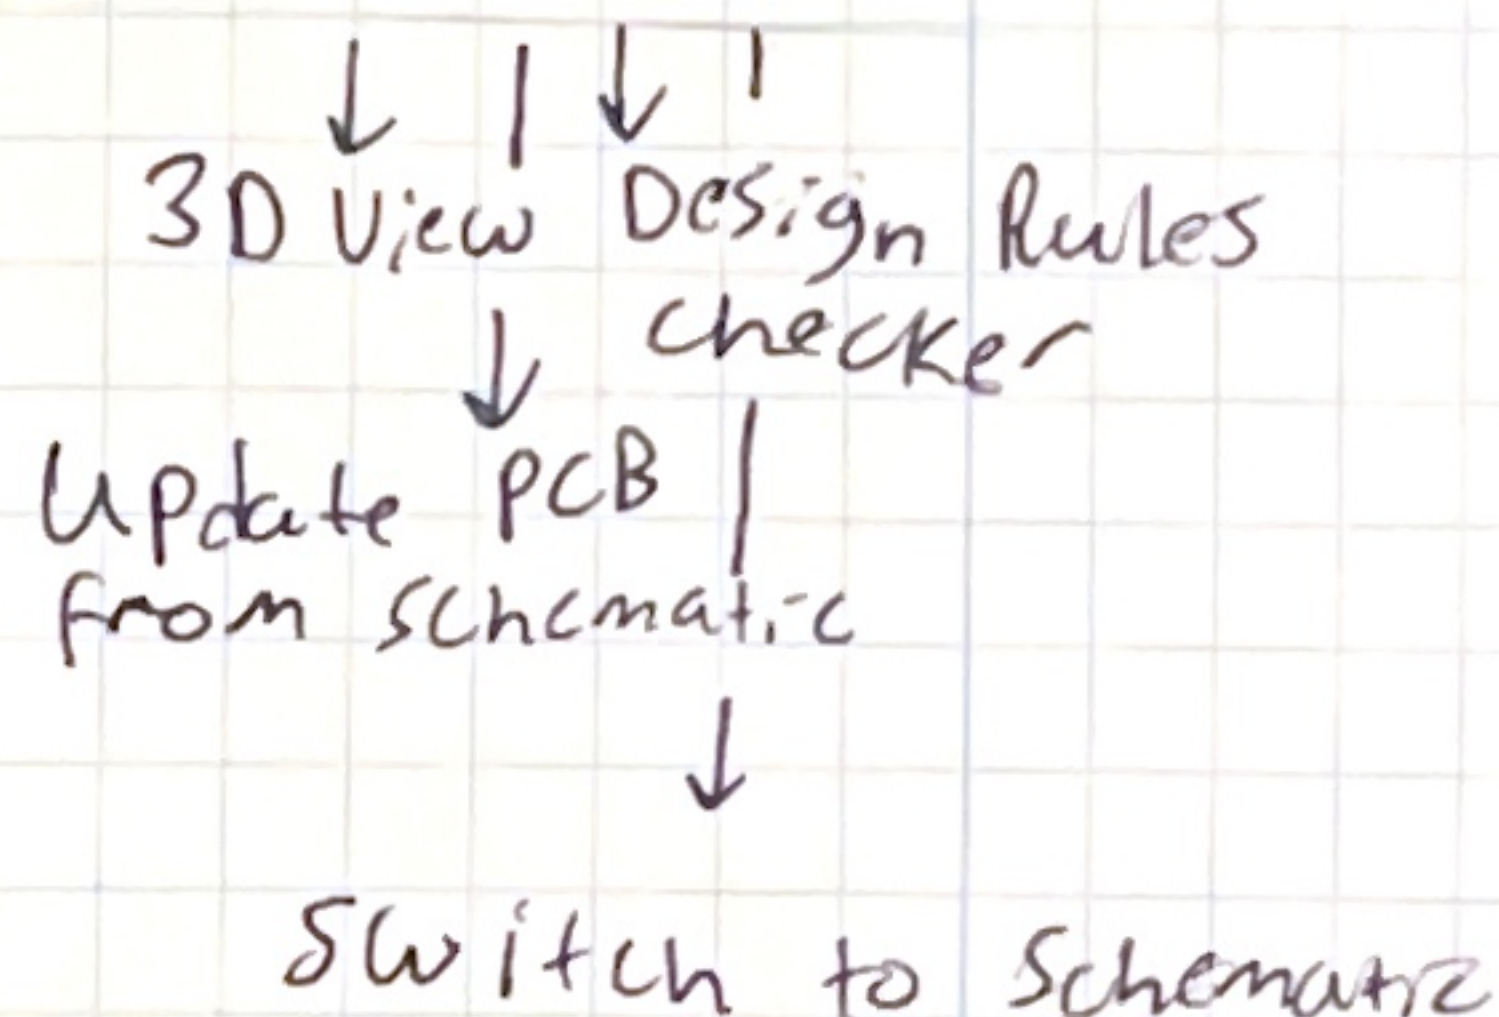 3D View Design Rules
checker
Update PCB
from schematic
Switch to Schematic